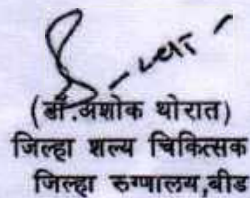 (डॉ.अशोक थोरात)
जिल्हा शल्य चिकित्सक
जिल्हा रुग्णालय,बीड